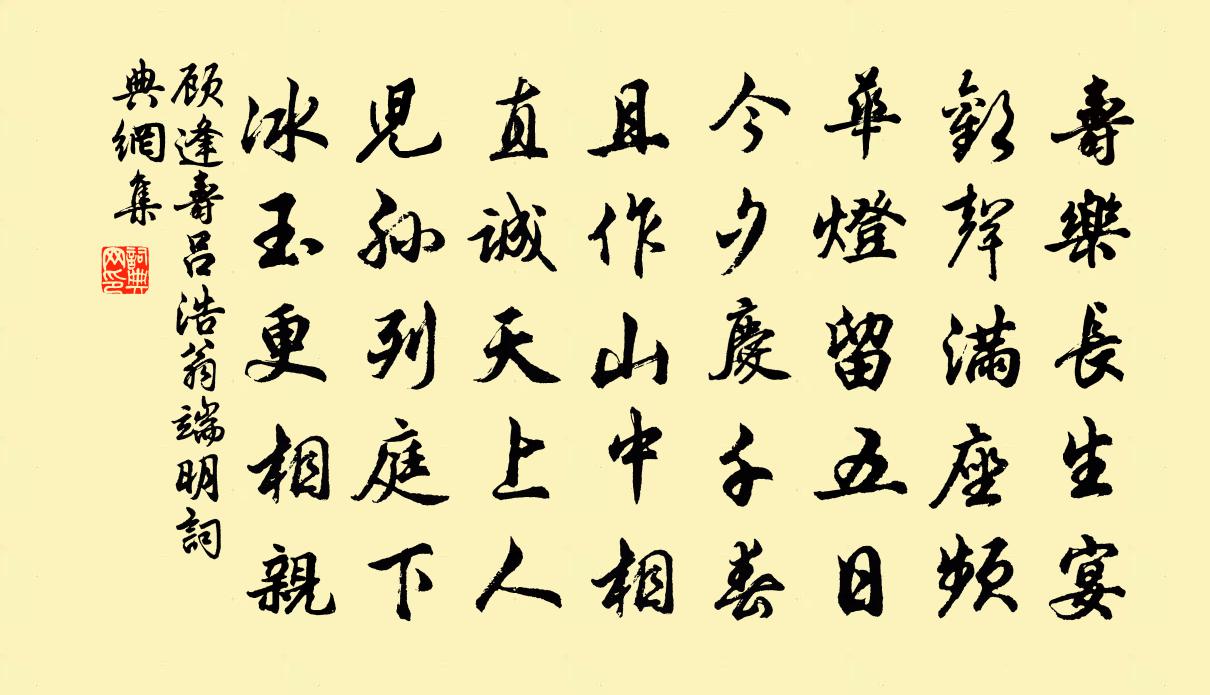 壽樂長生宴
歡聲滿座頻
華燈留五日
今夕慶千春
且作山中相
真誠天上人
兒孫列庭下
冰玉更相親
顧逢壽呂浩翁端明詞
典網集
詞典
网印